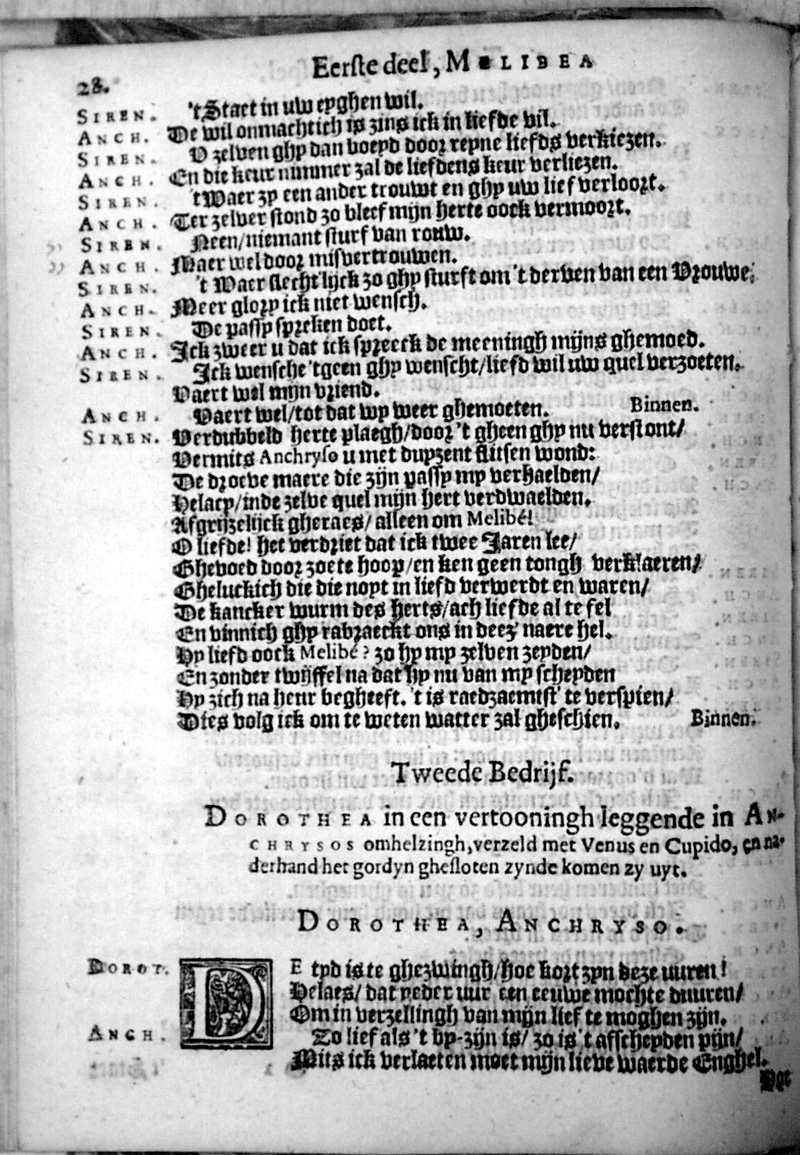 28. Eerste deel, MELIBEA
SIREN. 't Staet in uw eyghen wil.
ANCH. De wil onmachtich is zins ick in liefde vil.
SIREN. V zelven ghy dan voeyd door reyne liefds verkiezen.
ANCH. En die keur nimmer zal de liefdens keur verliezen.
SIREN. 't Waer zy een ander trouwt en ghy uw lief verloort.
ANCH. Ter zelver stond zo bleef mijn herte oock vermoort.
„ SIREN. Neen/niemant sturf van rouw.
„ ANCH. Maer wel door misvertrouwen.
SIREN. 't Waer slecht'lijck zo ghy sturft om 't derven van een Vrouwe.
ANCH. Meer glory ick niet wensch.
SIREN. De passy spreken doet.
ANCH. Ick zweer u dat ick spreeck de meeningh mijns ghemoed.
SIREN. Ick wensche 'tgeen ghy wenscht/liefd wil uw quel verzoeten.
Vaert wel mijn vriend.
ANCH. Vaert wel/tot dat wy weer ghemoeten. Binnen.
SIREN. Verdubbeld herte plaegh/door 't gheen ghy nu verstont/
Vermits Anchryso u met duyzent flitsen wond:
De droeve maere die zijn passy my verhaelden/
Helaey/inde zelve quel mijn hert verdwaelden.
Afgrijzelijck gheraes/alleen om Melibé!
O liefde! het verdriet dat ick twee Jaren lee/
Ghevoed door zoete hoop/en ken geen tongh verklaeren/
Gheluckich die die noyt in liefd verwerdt en waren/
De kancker wurm des herts/ach liefde al te fel
En vinnich ghy rabraeckt ons in deez' naere hel.
Hy liefd oock Melibé? zo hy my zelven zeyden/
En zonder twyffel na dat hy nu van my scheyden
Hy zich na heur begheeft. 't is raedzaemst' te verspien/
Dies volg ick om te weten watter zal gheschien. Binnen.
Tweede Bedrijf.
DOROTHEA in een vertooningh leggende in AN-
CHRYSOS omhelzingh, verzeld met Venus en Cupido, en na-
derhand het gordyn ghesloten zynde komen zy uyt.
DOROTHEA, ANCHRYSO.
DOROT. DE tyd is te ghezwingh/hoe kort zyn deze uuren!
Helaes/dat yeder uur een eeuwe mochte duuren/
Om in verzellingh van mijn lief te moghen zijn.
ANCH. Zo lief als 't by-zijn is/zo is 't afscheyden pijn/
Mits ick verlaeten moet mijn lieve waerde Enghel.